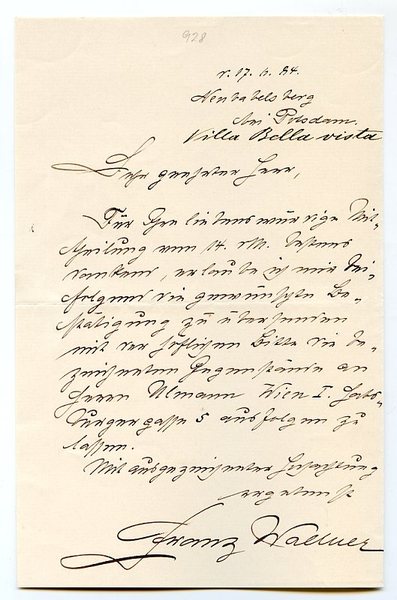 928
d. 17. 6. 84.
Neubabelsberg
bei Potsdam.
Villa Bella vista
Sehr geehrter Herr,
Für Ihre liebenswürdige Mit-
theilung vom 14. dM. bestens
dankend, erlaube ich mir bei-
folgend die gewünschte Be-
stätigung zu übersenden
mit der höflichen Bitte die be-
zeichneten Gegenstände an
Herrn Ulmann Wien I. Habs-
burgergasse 5 ausfolgen zu
lassen.
Mit ausgezeichneter Hochachtung
ergebenst
Franz Wallner